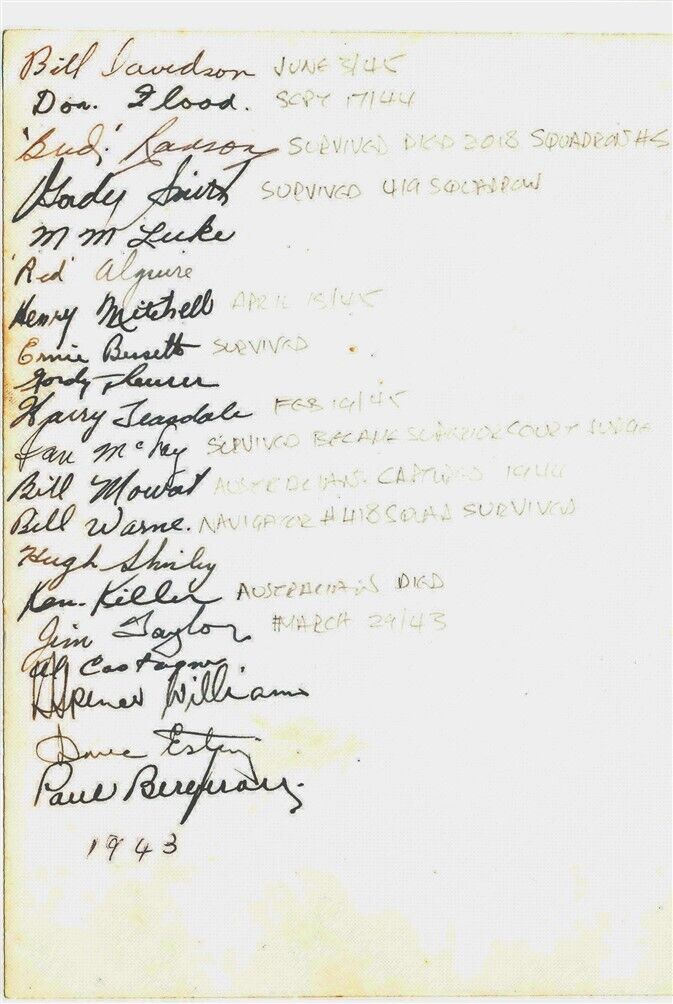 Bill Davidson JUNE 3/45
Don. Flood. SEPT 17/44
'Bud' Ranson SURVIVED DIED 2018 SQUADRON #5
Gordy Smith SURVIVED 419 SQUADRON
M M Luke
'Red' Alguire
Henry Mitchell APRIL 15/45
Ernie Bessett SURVIVED
Gordy
Harry Teasdale FEB 19/45
Ian McKay SURVIVED BECAME SUPERIOR COURT JUDGE
Bill Mowat AUSTRALIAN CAPTURED 1944
Bill Warne. NAVIGATOR #418 SQUAD SURVIVED
Hugh Shirley
Ken. Killen AUSTRALIAN DIED
Jim Taylor MARCH 29/43
Al Castagner
Spencer Williams
Dave
Paul Bergman
1943